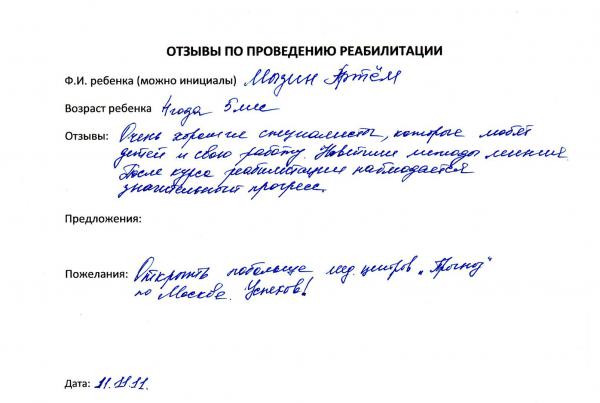 ОТЗЫВЫ ПО ПРОВЕДЕНИЮ РЕАБИЛИТАЦИИ
Ф.И. ребенка (можно инициалы) Мызин Артём
Возраст ребенка 4 года 5 мес
Отзывы: Очень хорошие специалисты, которые любят
детей и свою работу. Новейшие методы лечения.
После курса реабилитации наблюдается
значительный прогресс.
Предложения:
Пожелания: Открыть побольше мед. центров „Прогноз"
по Москве. Успехов!
Дата: 11.11.11.